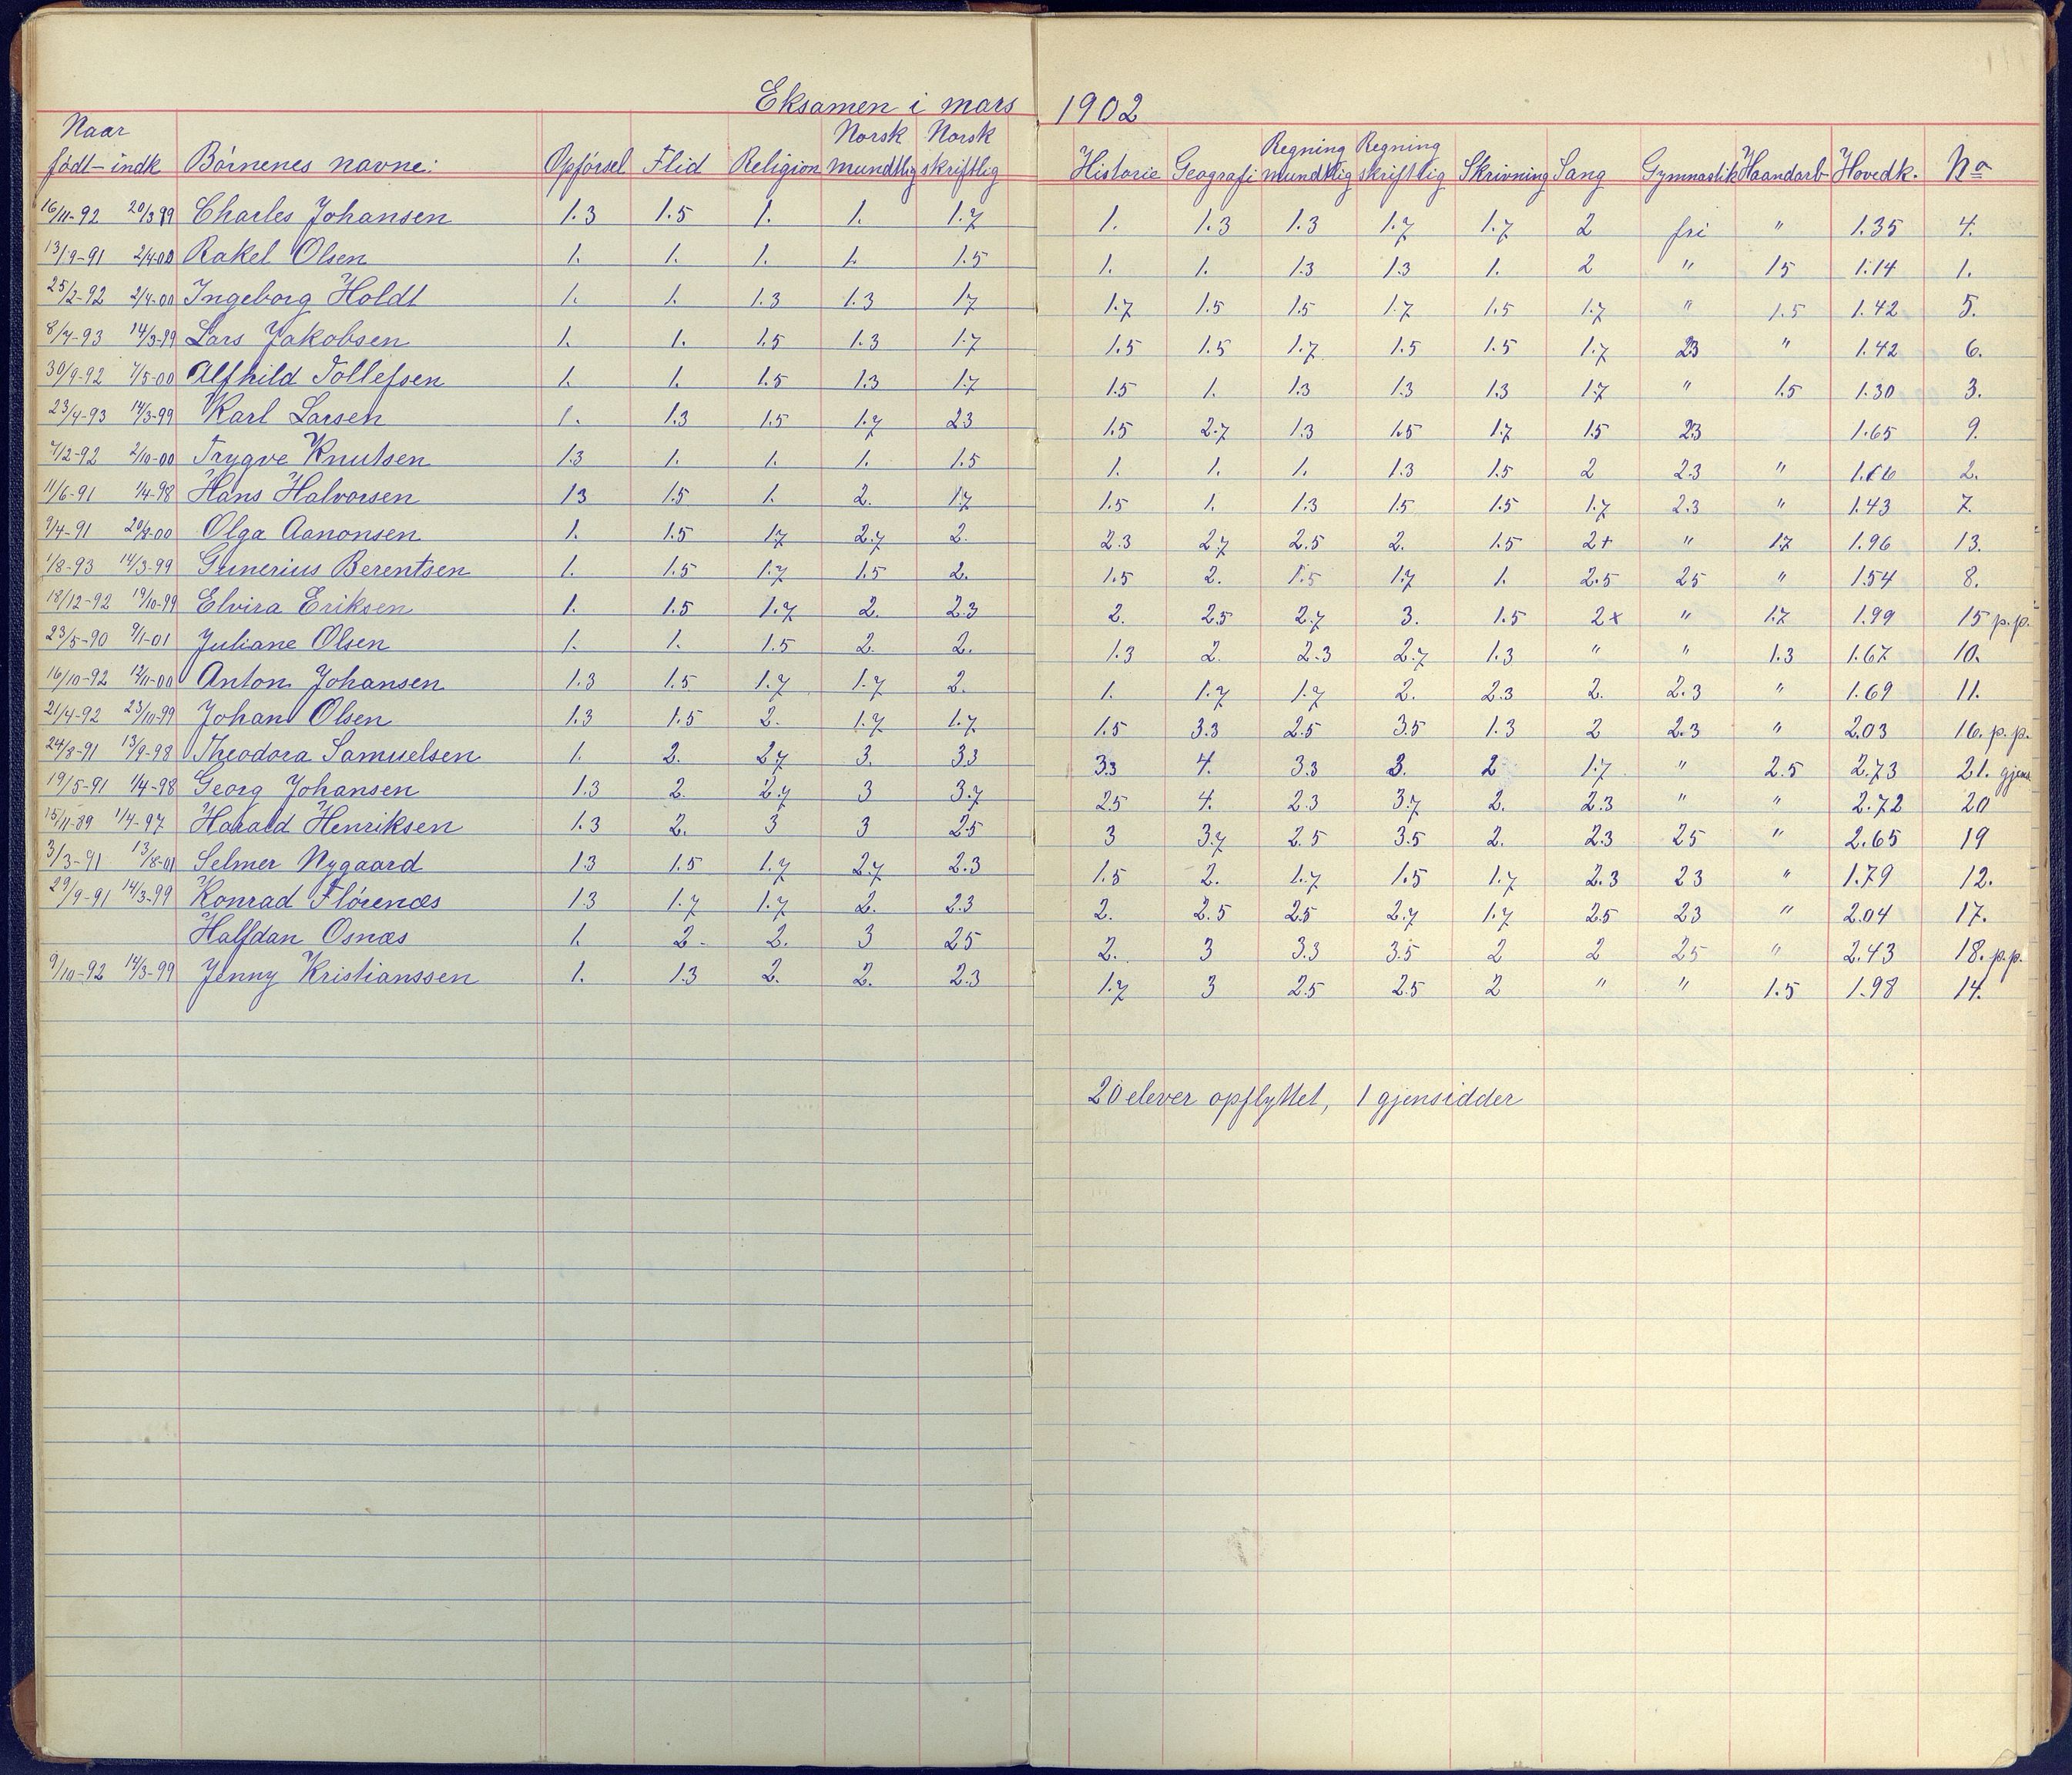 Eksamen i mars 1902
Naar Norsk Norsk Regning Regning
født – indk Børnenes navne: Opførsel Flid Religion mundtlig skriftlig Historie Geografi mundtlig skriftlig Skrivning Sang Gymnastik Haandarb Hovedk. No
16/11-92 20/3 99 Charles Johansen 1.3 1.5 1. 1. 1.7 1. 1.3 1.3 1.7 1.7 2 fri " 1.35 4.
13/9-91 2/4-00 Rakel Olsen 1. 1. 1. 1. 1.5 1. 1. 1.3 1.3 1. 2 " 15 1.14 1.
25/2-92 2/4-00 Ingeborg Holdt 1. 1. 1.3 1.3 17 1.7 1.5 1.5 1.7 1.5 1.7 " 1.5 1.42 5.
8/7-93 14/3-99 Lars Jakobsen 1. 1. 1.5 1.3 1.7 1.5 1.5 1.7 1.5 1.5 1.7 23 " 1.42 6.
30/9-92 7/5-00 Alfhild Tollefsen 1. 1. 1.5 1.3 1.7 1.5 1. 1.3 1.3 1.3 1.7 " 1.5 1.30 3.
23/4-93 14/3-99 Karl Larsen 1. 1.3 1.5 1.7 23 1.5 2.7 1.3 1.5 1.7 15 23 1.65 9.
7/12-92 2/10-00 Trygve Knutsen 1.3 1. 1. 1. 1.5 1. 1. 1. 1.3 1.5 2 23 " 2.
11/6-91 1/4-98 Hans Halvorsen 13 1.5 1. 2. 17 1.5 1. 1.3 1.5 1.5 1.7 2.3 " 1.43 7.
9/4-91 Olga Aanonsen 1. 1.5 17 2.7 2. 2.3 2.7 2.5 2. 1.5 2+ " 1.7 1.96 13.
1/8-93 14/3-99 Gunerius Berentsen 1. 1.5 1.7 1.5 2. 1.5 2. 1.5 1.7 1. 2.5 25 " 1.54 8.
18/12-92 19/10-99 Elvira Eriksen 1. 1.5 1.7 2. 2.3 2. 2.5 2.7 3. 1.5 2x " 1.7 1.99 15 p.p.
23/5-90 9/1-01 Juliane Olsen 1. 1. 1.5 2. 2. 1.3 2. 2.3 2.7 1.3 " " 1.3 1.67 10.
16/10-92 12/11-00 Anton Johansen 1.3 1.5 1.7 1.7 2. 1. 1.7 1.7 2. 2.3 2. 2.3 " 1.69 11.
21/4-92 23/10-99 Johan Olsen 1.3 1.5 2. 1.7 1.7 1.5 3.3 2.5 3.5 1.3 2 2.3 " 2.03 16. p.p.
24/8-91 13/9-98 Theodora Samuelsen 1. 2. 2.7 3. 33 33 4. 3.3 3. 2 1.7 " 2.5 2.73 21. gjens
19/5-91 1/4-98 Georg Johansen 1.3 2. 2.7 3 3.7 25 4. 2.3 3.7 2. 2.3 " " 2.72 20
15/11-89 1/4-97 Harald Henriksen 1.3 2. 3 3 2.5 3 3.7 2.5 3.5 2. 23 25 " 2.65 19
3/3-91 13/8-01 Selmer Nygaard 1.3 1.5 1.7 2.7 2.3 1.5 2. 1.7 1.5 1.7 2.3 23 " 1.79 12.
29/9-91 14/3-99 Konrad Flørenæs 1.3 1.7 1.7 2. 2.3 2. 2.5 25 2.7 1.7 25 23 " 2.04 17.
Halfdan Osnæs 1. 2- 2. 3 25 2. 3 3.3 3.5 2 2 25 " 2.43 18. p.p.
9/10-92 14/3-99 Jenny Kristianssen 1. 1.3 2. 2. 2.3 1.7 3 2.5 2.5 2 " " 1.5 1.98 14.
20 elever opflyttet, 1 gjensidder